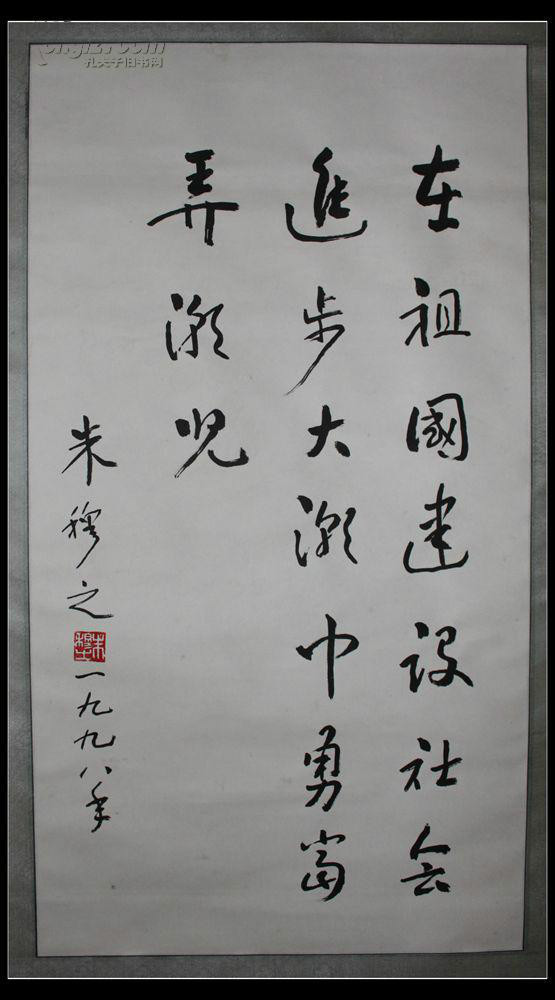 在祖國建设社会
進步大潮中勇當
弄潮児
朱穆之
一九九八年
孔夫子旧书网